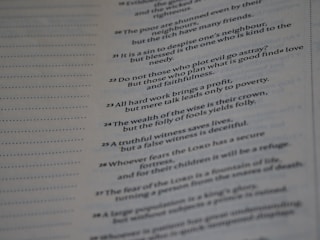 and the wicked at
righteous.
20 The poor are shunned even by their
neighbours,
but the rich have many friends.
21 It is a sin to despise one's neighbour,
but blessed is the one who is kind to the
needy.
22 Do not those who plot evil go astray?
But those who plan what is good find love
and faithfulness.
23 All hard work brings a profit,
but mere talk leads only to poverty.
24 The wealth of the wise is their crown,
but the folly of fools yields folly.
25 A truthful witness saves lives,
but a false witness is deceitful.
26 Whoever fears the LORD has a secure
fortress,
and for their children it will be a refuge.
27 The fear of the LORD is a fountain of life,
turning a person from the snares of death.
28 A large population is a king's glory,
but without subjects a prince is ruined.
29 Whoever is patient has great understanding,